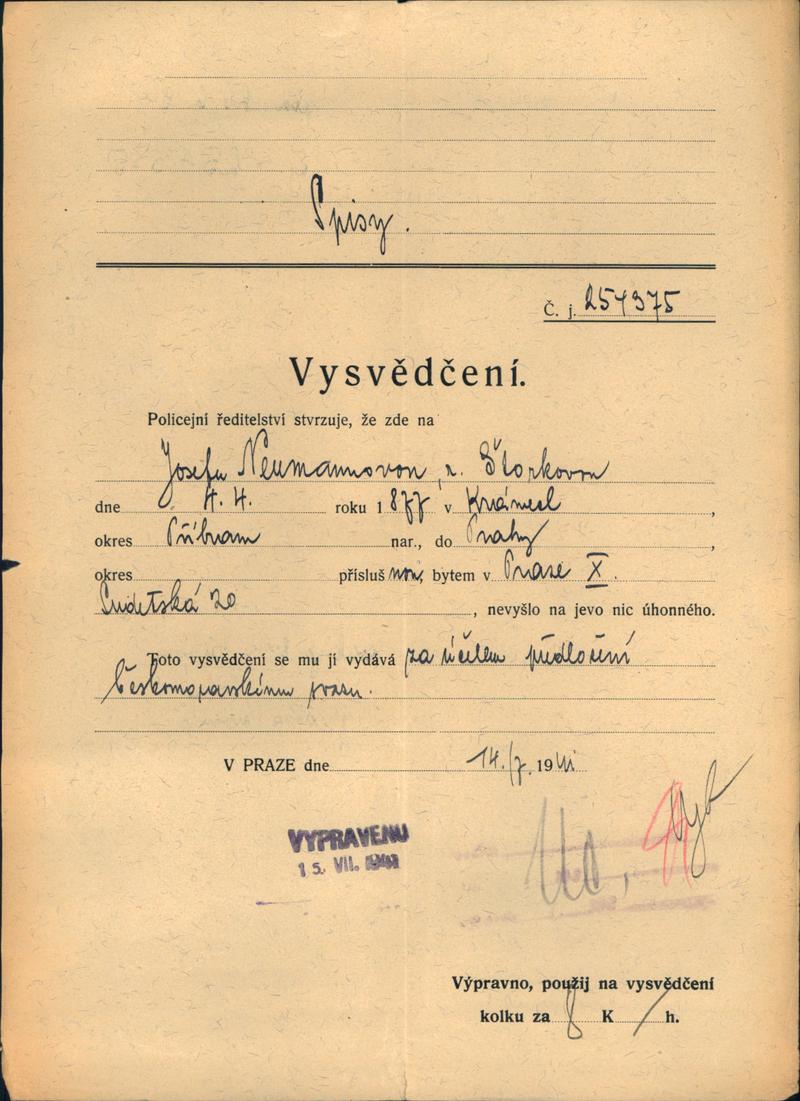 Spisy.
Č. j. 254375
Vysvědčení.
Policejní ředitelství stvrzuje, že zde na
Josefu Neumannovou, r. Štorkovou
dne 4. 4. roku 1877 v
okres Příbram nar., do Prahy,
okres přísluš nou, bytem v Praze X.
Sudetská 20, nevyšlo na jevo nic úhonného.
Toto vysvědčení se mu jí vydává za účelem předložení
Českomoravskému svazu.
V PRAZE dne 14./7. 1941
VYPRAVENO
15. VII. 1941
Výpravno, použij na vysvědčení
kolku za 8 K / h.